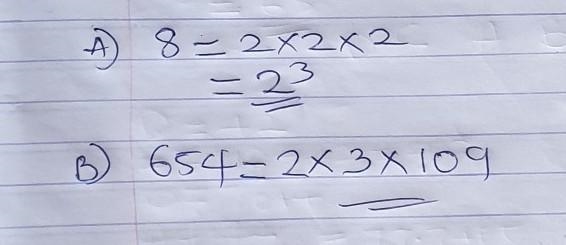 A) 8 = 2×2×2
= 2³
B) 654 = 2×3×109